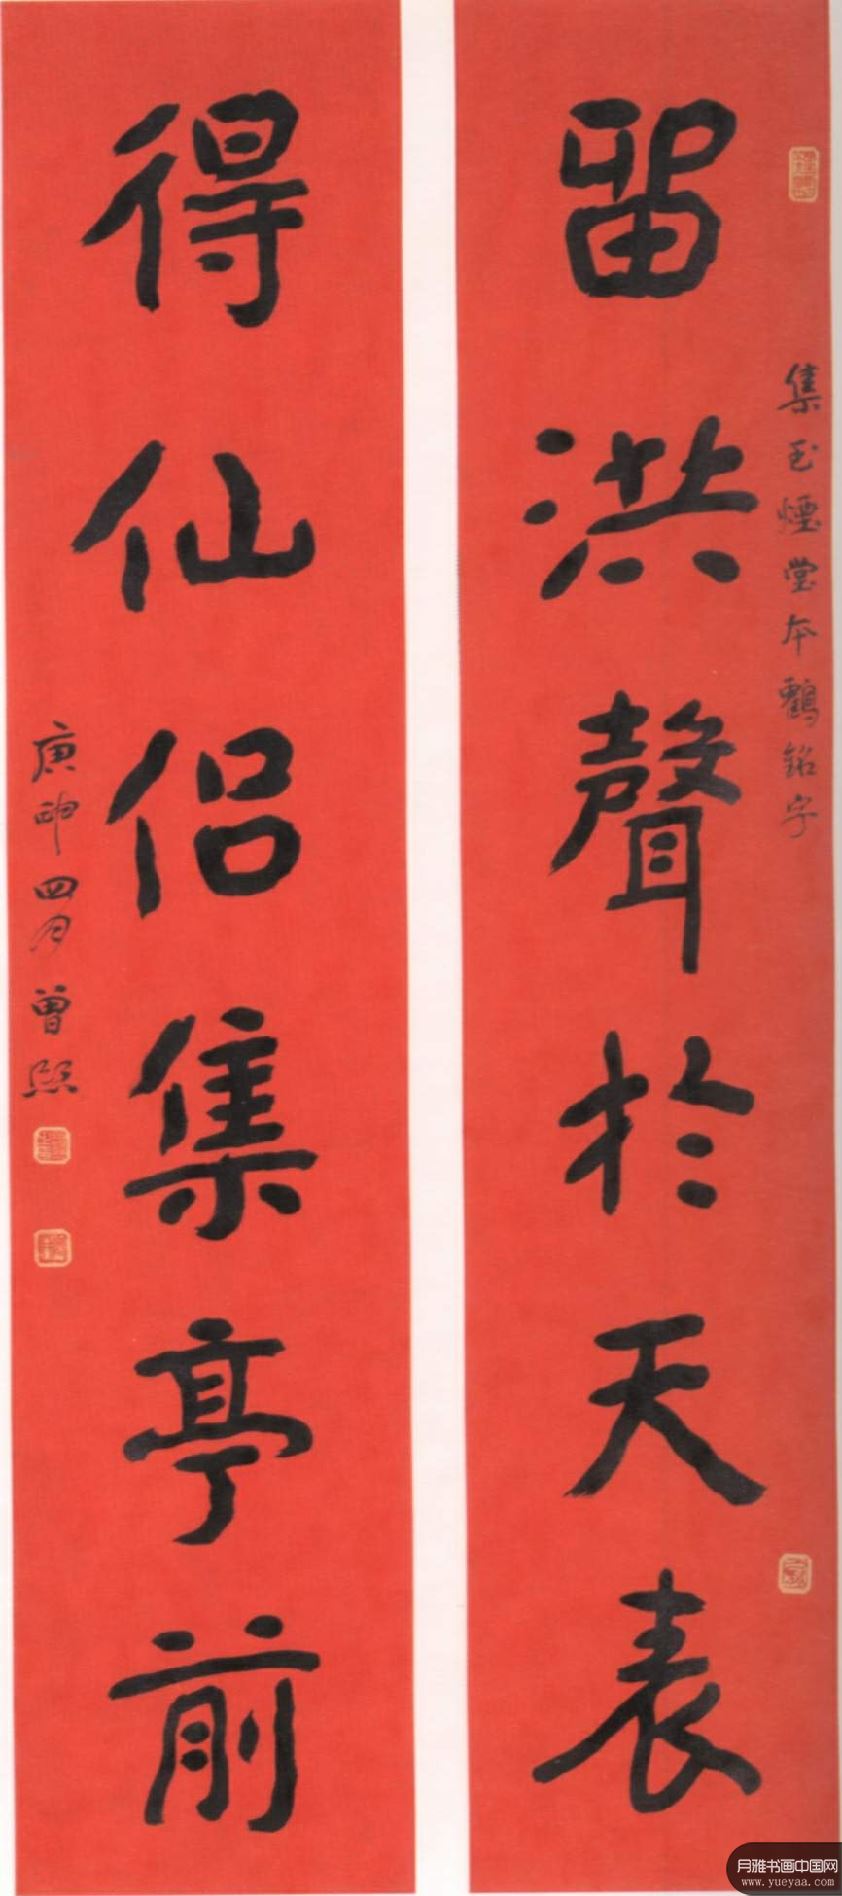 集玉煙堂本鶴銘字
留洪聲於天表
得仙侶集亭前
庚申四月曾熙
月雅书画中国网
www.yueyaa.com